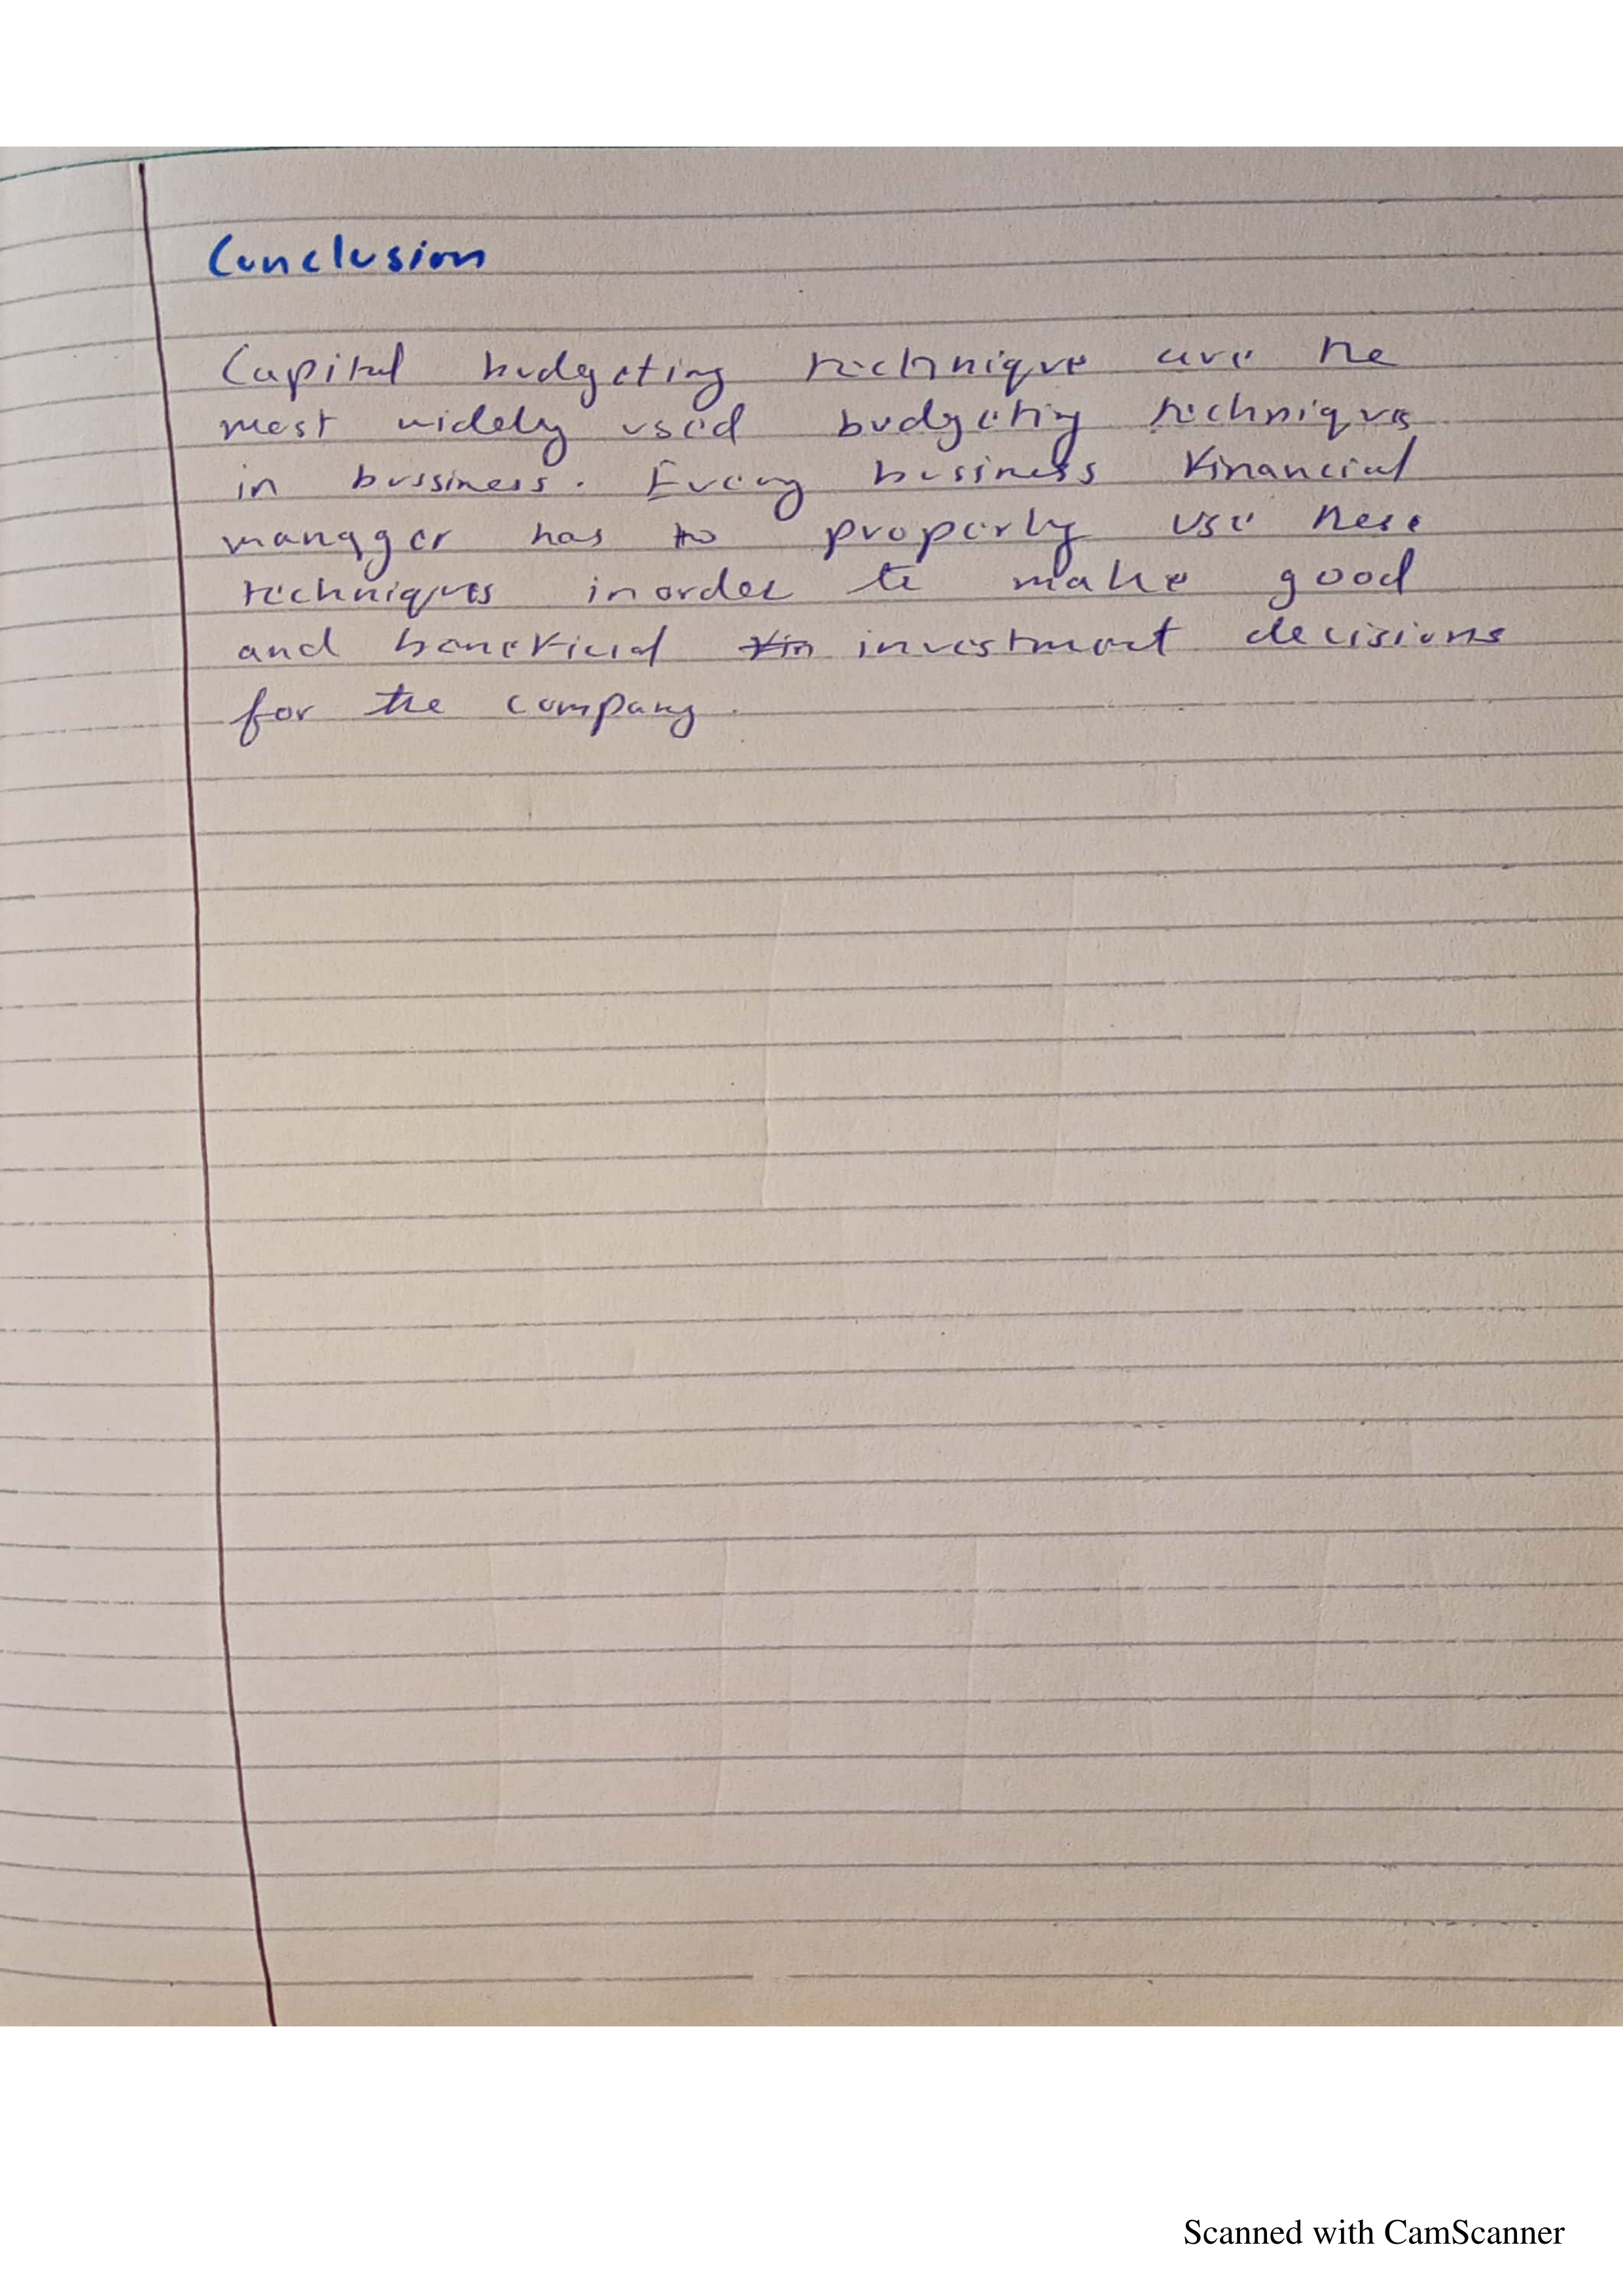 Conclusion
Capital budgeting technique are the
most widely used budgeting techniques
in bussiness. Every business financial
manager has to properly use these
techniques inorder to make good
and beneficial investment decisions
for the company.
Scanned with CamScanner